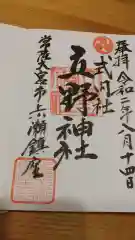 奉拝 令和二年八月十四日
式内社
立野神社
常陸大宮市上小瀬鎮座